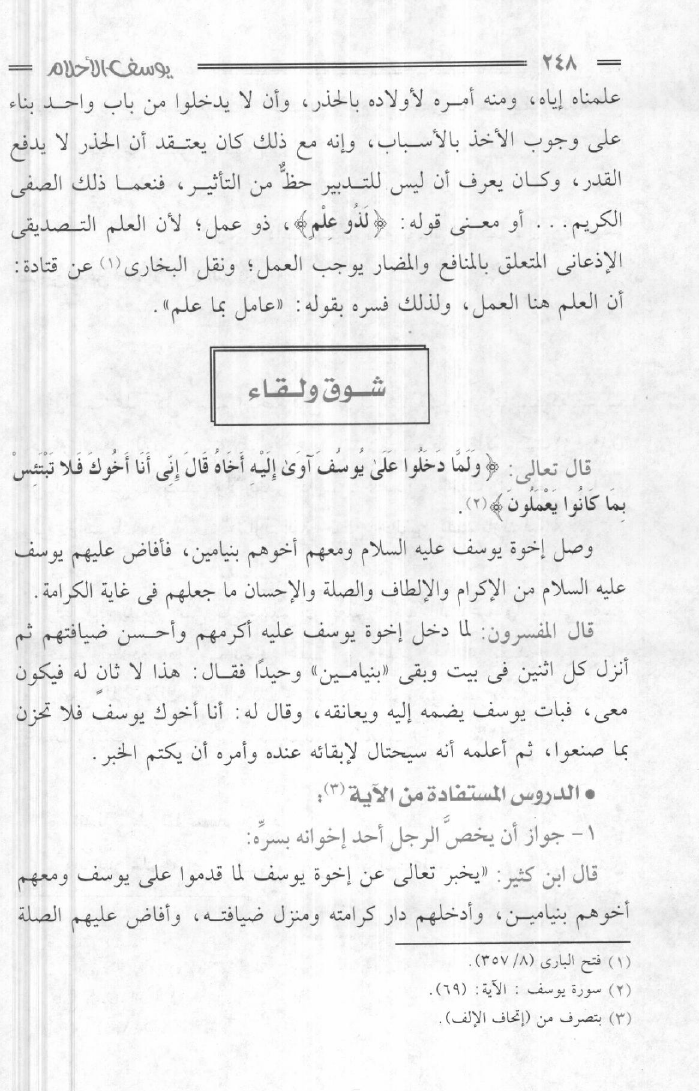 ٢٤٨ يوسف الأحلام
علمناه إياه، ومنه أمـره لأولاده بالحذر، وأن لا يدخلوا من باب واحـد بناء
على وجوب الأخذ بالأسـباب، وإنه مع ذلك كان يعتـقد أن الحذر لا يدفع
القدر، وكـان يعرف أن ليس للتـدبير حظٌّ من التأثيـر، فنعمـا ذلك الصفى
الكريم... أو معـنى قوله: ﴿لَذُو عِلْمٍ﴾، ذو عمل؛ لأن العلم التـصديقى
الإذعانى المتعلق بالمنافع والمضار يوجب العمل؛ ونقل البخارى(١) عن قتادة:
أن العلم هنا العمل، ولذلك فسره بقوله: «عامل بما علم».
شـوق ولـقـاء
قال تعالى: ﴿وَلَمَّا دَخَلُوا عَلَىٰ يُوسُفَ آوَىٰ إِلَيْهِ أَخَاهُ قَالَ إِنِّى أَنَا أَخُوكَ فَلا تَبْتَئِسْ
بِمَا كَانُوا يَعْمَلُونَ﴾(٢).
وصل إخوة يوسف عليه السلام ومعهم أخوهم بنيامين، فأفاض عليهم يوسف
عليه السلام من الإكرام والإلطاف والصلة والإحسان ما جعلهم فى غاية الكرامة.
قال المفسرون: لما دخل إخوة يوسف عليه أكرمهم وأحـسن ضيافتهم ثم
أنزل كل اثنين فى بيت وبقى «بنيامـين» وحيدًا فقـال: هذا لا ثانٍ له فيكون
معى، فبات يوسف يضمه إليه ويعانقه، وقال له: أنا أخوك يوسف فلا تحزن
بما صنعوا، ثم أعلمه أنه سيحتال لإبقائه عنده وأمره أن يكتم الخبر.
• الدروس المستفادة من الآية(٣):
١- جواز أن يخصَّ الرجل أحد إخوانه بسرِّه:
قال ابن كثير: «يخبر تعالى عن إخوة يوسف لما قدموا على يوسف ومعهم
أخوهم بنياميـن، وأدخلهم دار كرامته ومنزل ضيافتـه، وأفاض عليهم الصلة
(١) فتح البارى (٨/ ٣٥٧).
(٢) سورة يوسف : الآية: (٦٩).
(٣) بتصرف من (إتحاف الإلف).